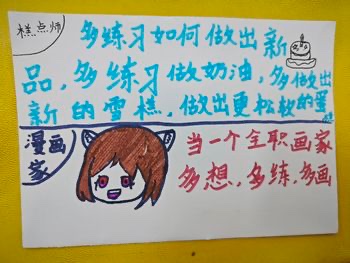 糕点师
多练习如何做出新
品，多练习做奶油，多做出
新的雪糕，做出更松软的蛋
糕
漫画
家
当一个全职画家
多想，多练，多画